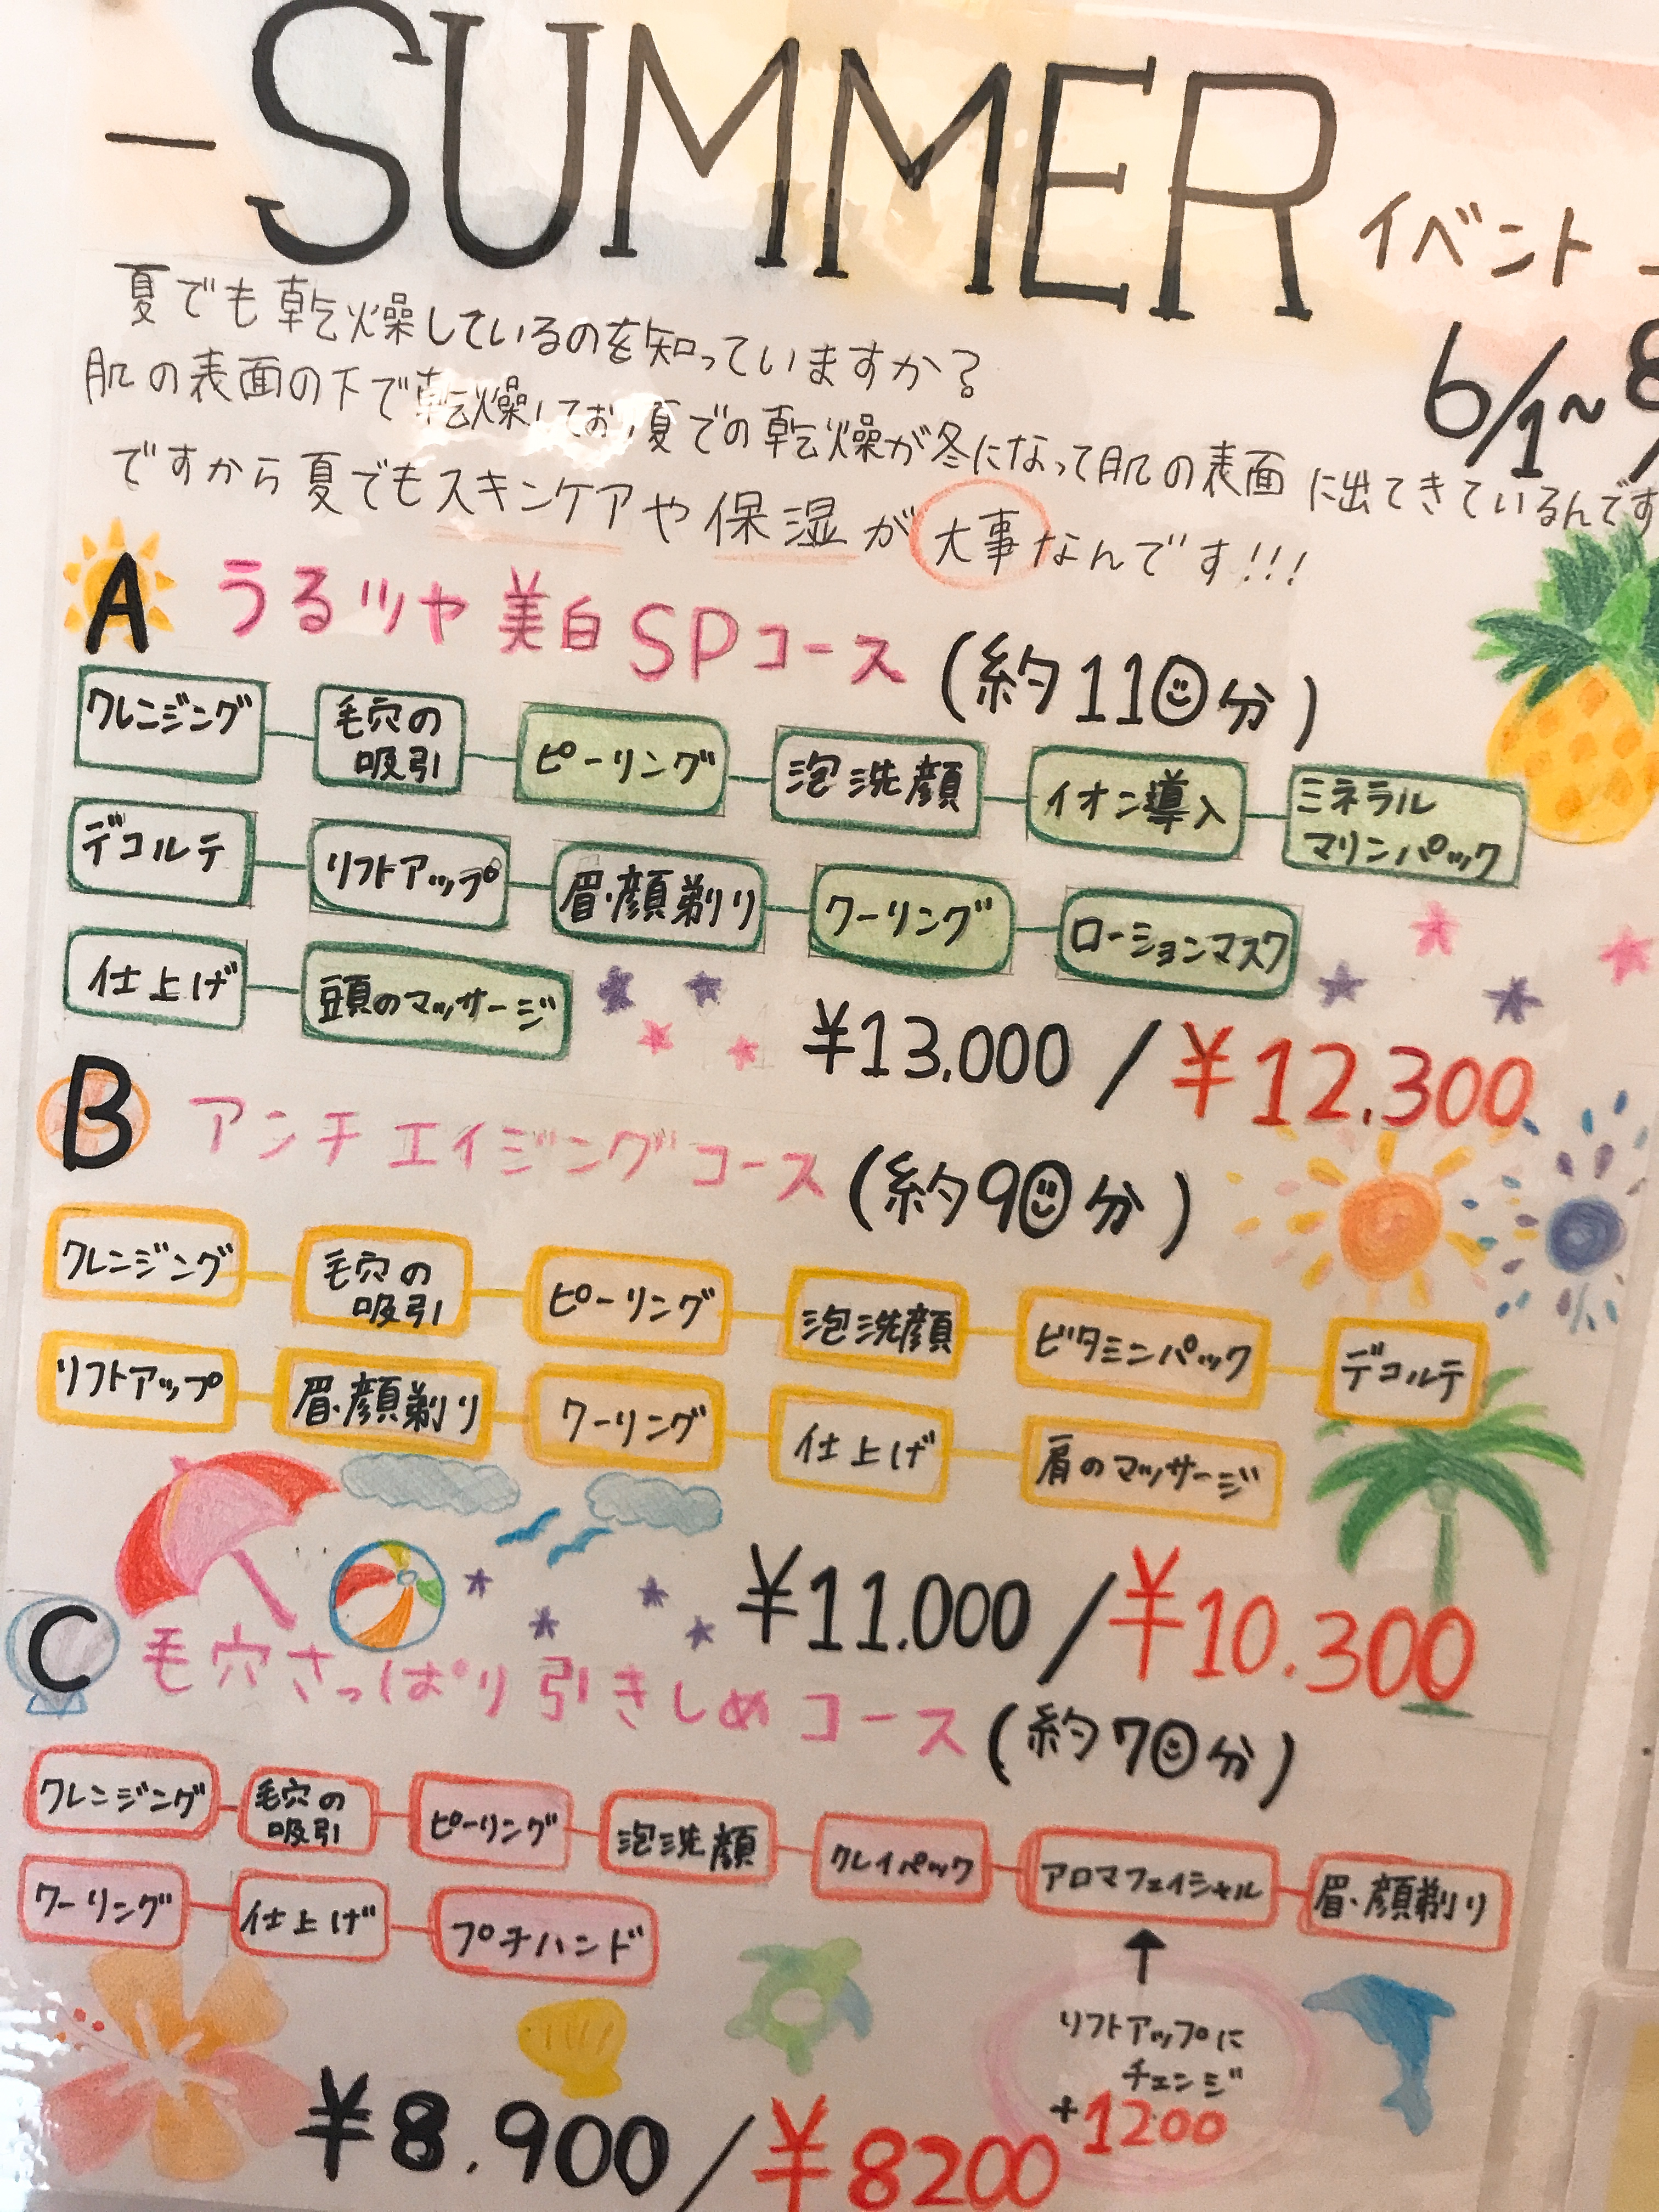 -SUMMER イベント-
6/1~8/
夏でも乾燥しているのを知っていますか?
肌の表面の下で乾燥しており夏での乾燥が冬になって肌の表面に出てきているんです
ですから夏でもスキンケアや保湿が大事なんです!!!
A うるツヤ美白SPコース (約110分)
クレンジング 毛穴の ピーリング 泡洗顔 イオン導入 ミネラル
吸引 マリンパック
デコルテ リフトアップ 眉・顔剃り クーリング ローションマスク
仕上げ 頭のマッサージ
¥13.000 / ¥12.300
B アンチエイジングコース (約90分)
クレンジング 毛穴の ピーリング 泡洗顔 ビタミンパック デコルテ
吸引
リフトアップ 眉・顔剃り クーリング 仕上げ 肩のマッサージ
¥11.000 / ¥10.300
C 毛穴さっぱり引きしめコース (約70分)
クレンジング 毛穴の ピーリング 泡洗顔 クレイパック アロマフェイシャル 眉・顔剃り
吸引
クーリング 仕上げ プチハンド
リフトアップに
チェンジ
+1200
¥8.900 / ¥8200